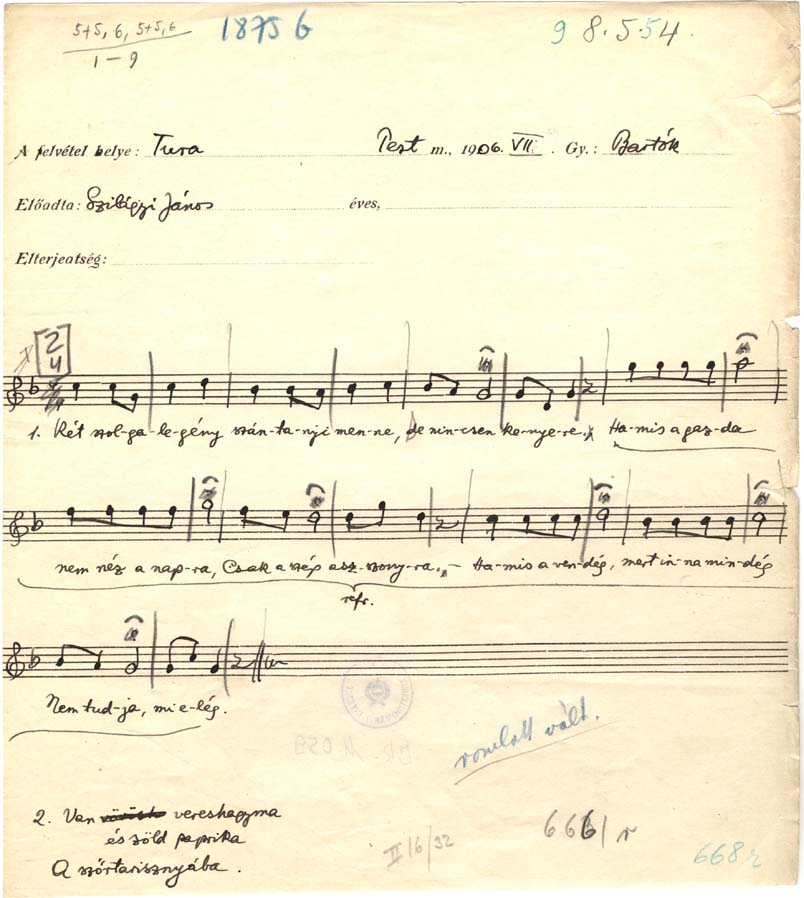 5+5, 6, 5+5, 6 1875 6 9 8.5.54.
1-9
A felvétel helye: Tura Pest m., 1906. VII. Gy.: Bartók
Előadta: Szilágyi János éves,
Elterjedtség:
2
4
1. Két szol-ga-le-gény szán-ta-nyi men-ne, de nin-csen ke-nye-re. Ha-mis a gaz-da
nem néz a nap-ra, Csak a szép asz-szony-ra. – Ha-mis a ven-dég, mert in-na min-dég
refr.
Nem tud-ja, mi e-lég.
romlott vált.
2. Van vereshagyma
és zöld paprika
A szőrtarisznyába.
II 6/32
666/r
668r